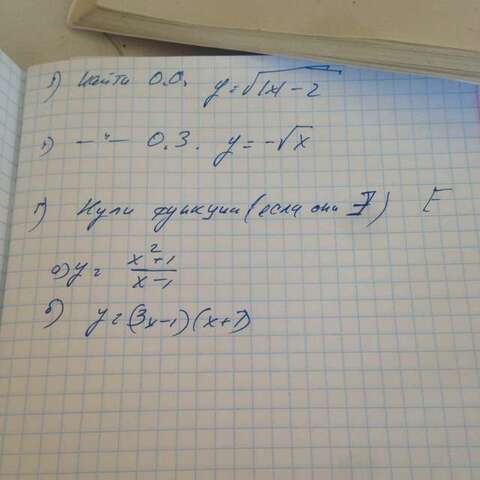 Найти О.О. y = √|x| - 2
—"— О.З. y = -√x
Нули функции (если они ∃) E
а) y = x²+1 / x-1
б) y = (3x-1)(x+7)